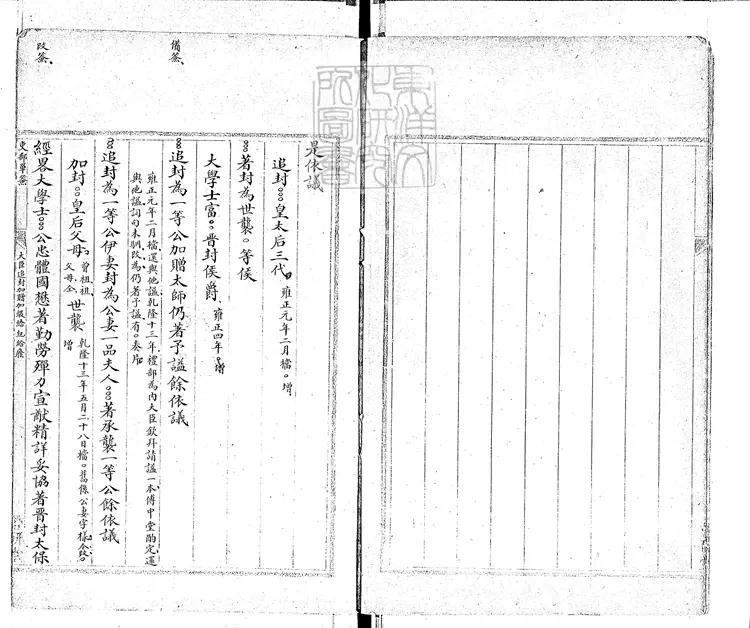 備簽
改簽
是依議
追封○○○皇太后三代 雍正元年二月檔○增
○○著封為世襲○等侯
大學士富○○晋封侯爵 雍正四年○增
○○追封為一等公加贈太師仍著予諡餘依議
雍正元年二月檔還與他諡乾隆十三年禮部為內大臣欽拜請諡一本傅中堂酌定還
與他諡詞句未馴改為仍著予諡有○奏片
○○追封為一等公伊妻封為公妻一品夫人○○著承襲一等公餘依議
加封○○皇后父母 曾祖祖父母仝 世襲 乾隆十三年五月二十八日檔○舊係公妻字樣今改○增
經畧大學士○○○公忠體國懋著勤勞殫力宣猷精詳妥協著晋封太保
吏部單簽
大臣追封加贈加級給
東洋文化研究所圖書